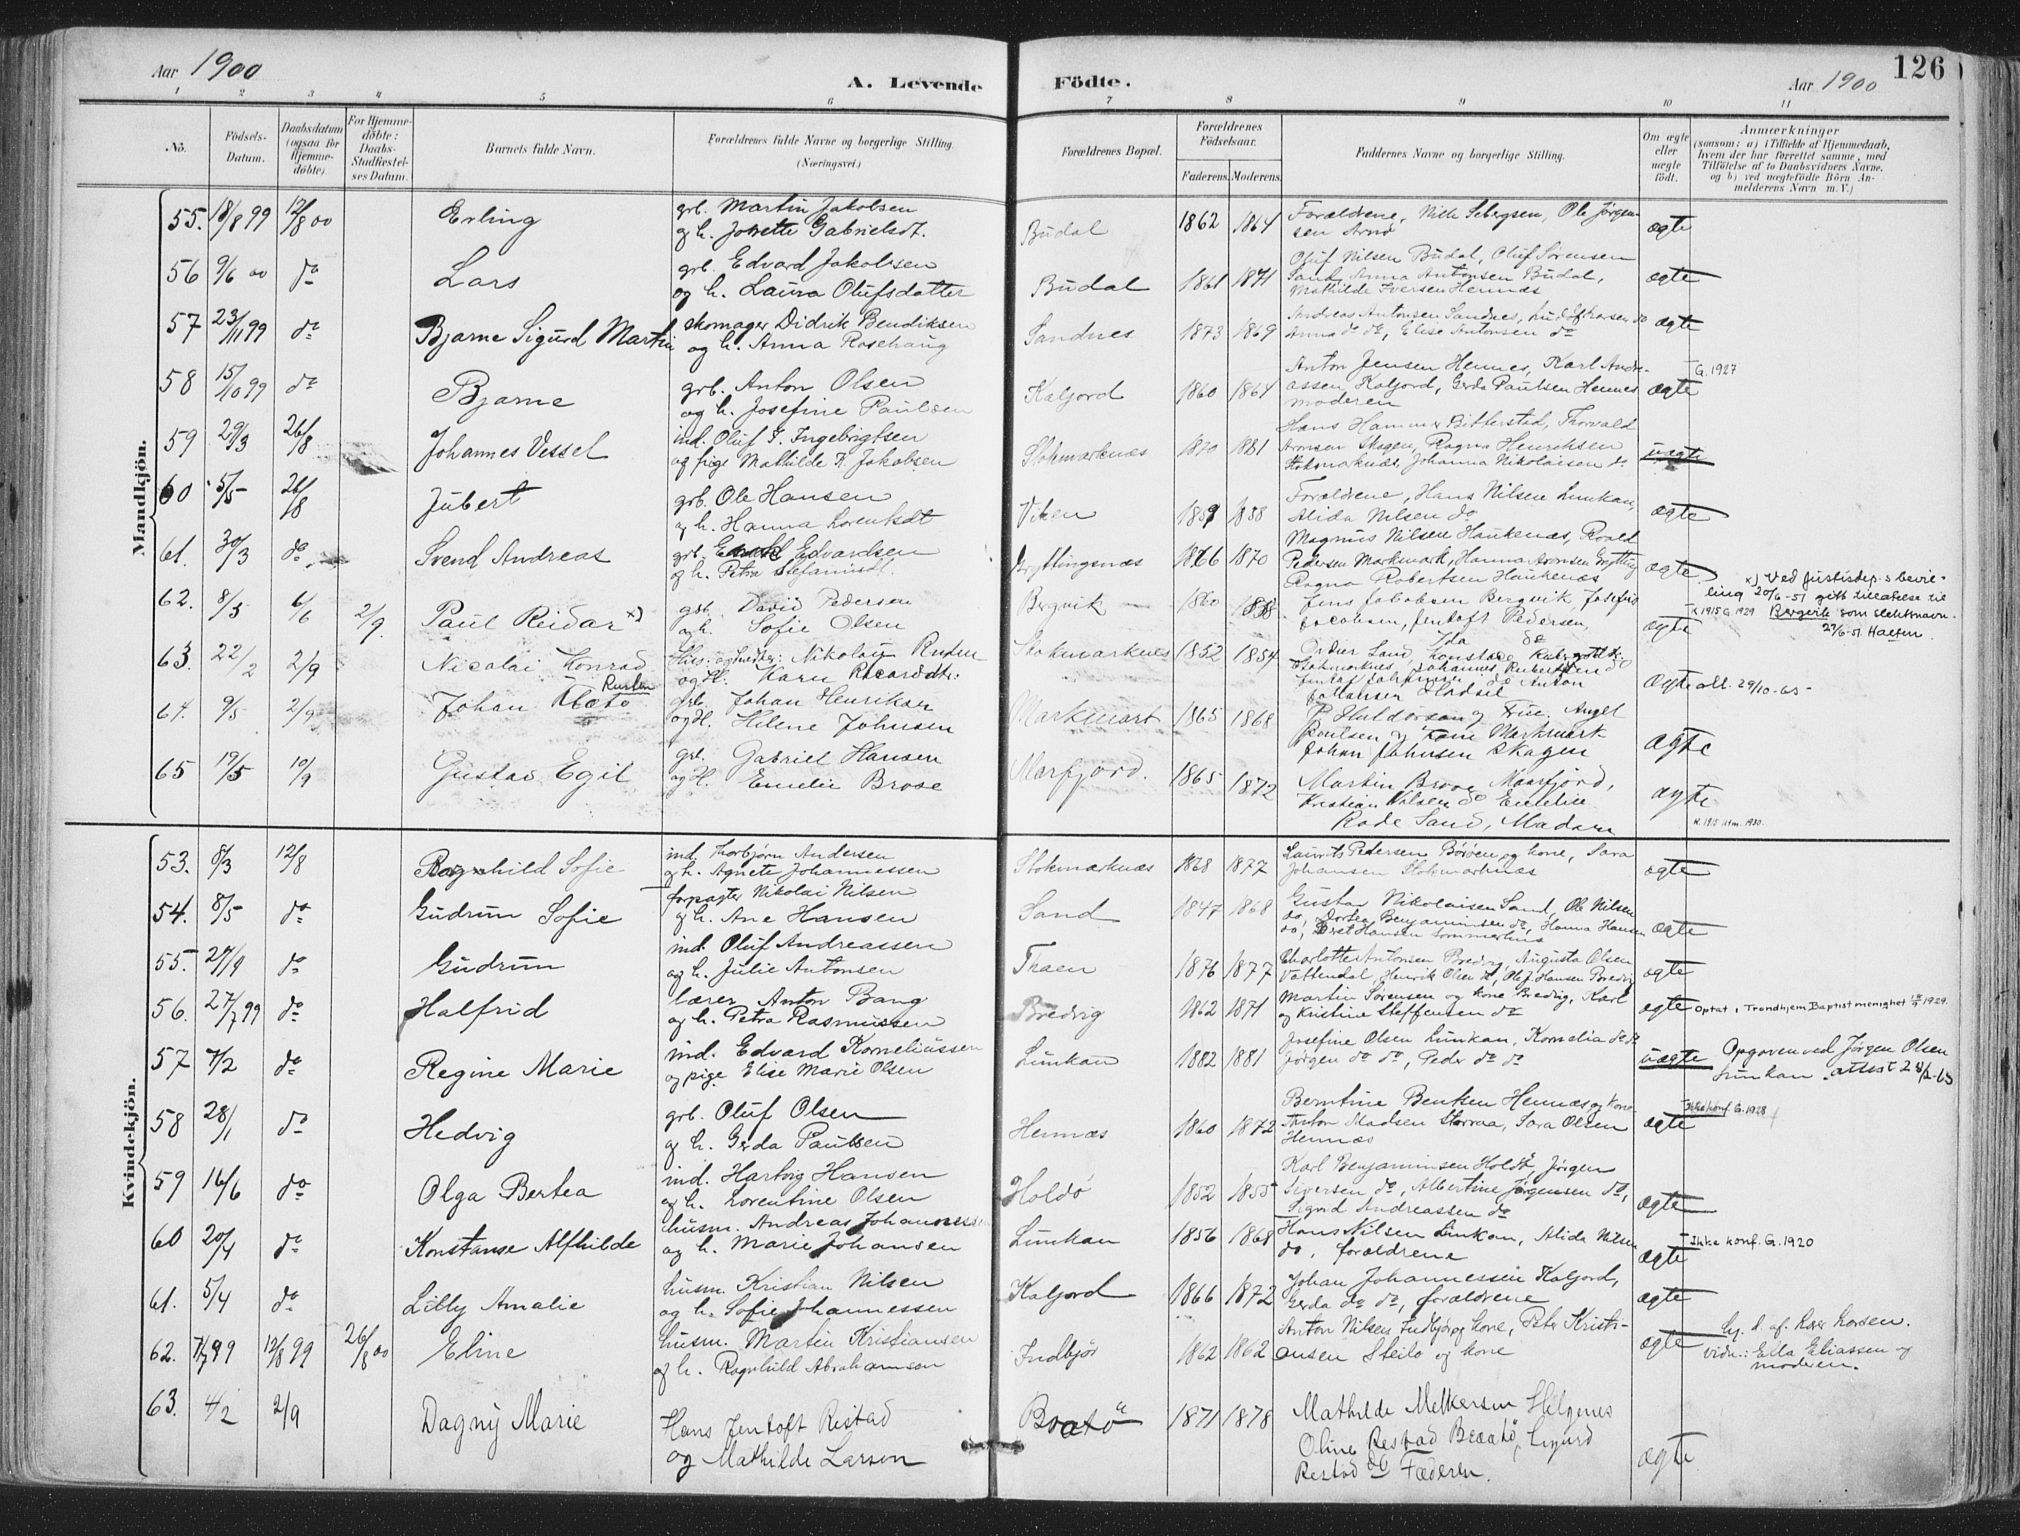 Aar 1900
A. Levende Födte.
Aar 1900
126
1 2 3 4 5 6 7 8 9 10 11
No.
Födsels-Datum.
Daabsdatum (ogsaa for Hjemme-döbte)
For Hjemme-döbte: Daabs-Stadfæstel-ses Datum.
Barnets fulde Navn.
Forældrenes fulde Navne og borgerlige Stilling. (Næringsvei.)
Forældrenes Bopæl.
Forældrenes Födselsaar.
Faderens. Moderens.
Faddernes Navne og borgerlige Stilling.
Om ægte eller uægte födt.
Anmærkninger
(saasom: a) i Tilfælde af Hjemmedaab, hvem der har forrettet samme, med Tilföielse af to Daabsvidners Navne, og b) ved uægtefödte Börn An-melderens Navn m. V.)
Mandkjön.
55. 18/8 99 12/8 00 Erling grb. Martin Jakobsen
og h. Jonette Gabrielsdt. Budal 1862 1864 Forældrene, Nils Sebergsen, Ole Jørgen-
sen Arnø ægte
56 9/6 00 do Lars grb. Edvard Jakobsen
og h. Laura Olufsdatter Budal 1861 1871 Oluf Nilsen Budal, Oluf Sørensen
Sand, Anna Antonsen Budal,
Mathilde Iversen Hennæs ægte
57 23/11 99 do Bjarne Sigurd Martin skomager Didrik Bendiksen
og h. Anna Rosehaug Sandnes 1873 1869 Andreas Antonsen Sandnes,
Anna do do, Elise Antonsen do ægte
58 15/10 99 do Bjarne grb. Anton Olsen
og h. Josefine Paulsen Kaljord 1860 1864 Anton Jensen Hennes, Karl Andre-
assen Kaljord, Gerda Paulsen Hennes
moderen ægte G. 1927
59 29/3 26/8 Johannes Vessel ind. Oluf I. Ingebrigtsen
og pige Mathilde K. Jakobsen Stokmarknæs 1870 1881 Hans Hammer Bitterstad, Thorvald
Aronsen Skagen, Ragna Henriksen
Stokmarknæs, Johanna Nikolaisen do uægte
60 5/5 26/8 Jubert grb. Ole Hansen
og h. Hanna Lorentsdt Viken 1859 1858 Forældrene, Hans Nilsen Lunkan,
Alida Nilsen do ægte
61. 30/3 do Svend Andreas grb. Edvardsen
og h. Petra Stefansdt. Gryttingsnæs 1866 1870 Magnus Nilsen Haukenæs, Roald
Pedersen Markmark, Hanna Aronsen Grytting
Ragna Robertsen Haukenæs ægte
62. 8/3 6/6 2/9 Paul Reidar x) grb. David Pedersen
og h. Sofie Olsen Bergvik 1860 Jens Jakobsen Bergvik, Josefine
Jacobsen, Jentoft Pedersen,
Ida do ægte x) Ved Justisdep.s bevil-
ling 20/6-51 gitt tillatelse til
K 1915 G. 1929 Bergvik som slektsnavn.
27/6-51 Halten.
63. 22/2 2/9 Nicolai Konrad Nikolay Rusten
og H. Karn Ricarddtr: Stokmarknes 1852 1854 ægte att. 29/10-65
Rusten
64. 9/5 2/9 Johan grb. Johan Henriksen
og H. Helene Johnsen Markmart 1865 1868 P Halderson og Frue. Angel
Poulsen og kone Markmark
Johan Johnsen Skagen ægte
65 19/5 10/9 Gustav Egil grb. Gabriel Hansen
og H. Emelie Brose Marfjord. 1865 1872 Martin Brose Maarfjord,
Kristian Nilsen do Emelie
Rode Sand, Madam ægte
K. 1915 Utm. 1930.
Kvindekjön.
53. 8/3 12/8 Ragnhild Sofie ind. Thorbjørn Andersen
og h. Agnete Johannessen Stokmarknæs 1868 1877 Laurits Pedersen Børøen og kone, Sara
Johansen Stokmarknæs ægte
54. 8/5 do Gudrun Sofie forpagter Nikolai Nilsen
og h. Ane Hansen Sand 1847 1868 Gustav Nikolaisen Sand, Ole Nilsen
do, Dortea Benjaminsen do, Hanna Hansen
do, Hansen Sommerhus ægte
55. 27/9 do Gudrun ind. Oluf Andreassen
og h. Julie Antonsen Thaen 1876 1877 Charlotte Antonsen Bredvig, Augusta Olsen
Vattendal, Henrik Olsen do, Ole J. Hansen Bredvig ægte
56. 27/7 99 do Halfrid lærer Anton Bang
og h. Petra Rasmussen Bredvig 1862 1871 Martin Sørensen og kone Bredvig, Karl
og Kristine Steffensen do ægte Optat i Trondhjem Baptistmenighet 18/9 1929.
57 7/2 do Regine Marie ind. Edvard Korneliussen
og pige Elise Marie Olsen Lunkan 1882 1881 Josefine Olsen Lunkan, Kornelia do do
Jørgen do do, Peder do do uægte Opgaven ved Jørgen Olsen
Lunkan. attest
58 28/1 do Hedvig grb. Oluf Olsen
og h. Gerda Paulsen Hennæs 1860 1872 Berntine Bentsen Hennæs og kone
Anton Madsen Storraa, Sara Olsen
Hennæs ægte Ikke konf G. 1928
59 16/6 do Olga Bertea ind. Hartvig Hansen
og h. Lorentine Olsen Holdø 1852 1855 Karl Benjaminsen Holdø, Jørgen
Siversen do, Albertine Jørgensen do,
Sigrid Andreassen do ægte
60 20/4 do Konstanse Alfhilde husm. Andreas Johannessen
og h. Marie Johansen Lunkan 1856 1868 Hans Nilsen Lunkan, Alida Nilsen
do, forældrene ægte Ikke konf. G. 1920
61. 5/4 do Lilly Amalie husm. Kristian Nilsen
og h. Sofie Johannessen Kaljord 1866 1872 Johan Johannessen Kaljord,
Gerda do do, forældrene ægte
62. 7/7 99 12/8 99 26/8 00 Eline husm. Martin Kristiansen
og h. Ragnhild Abrahamsen Indbjør 1862 1862 Anton Nilsen Indbjør og kone, Peter Kristi-
ansen Steilo og kone ægte hj. d. af Larsen.
vidn.: Ella Eliassen og
moderen.
63. 4/2 2/9 Dagny Marie Hans Jentoft Restad
og Mathilde Larson Brotø 1871 1878 Mathilde Melkersen Helgenes
Oline Restad Braatø, Sigurd
Restad do Faderen. ægte